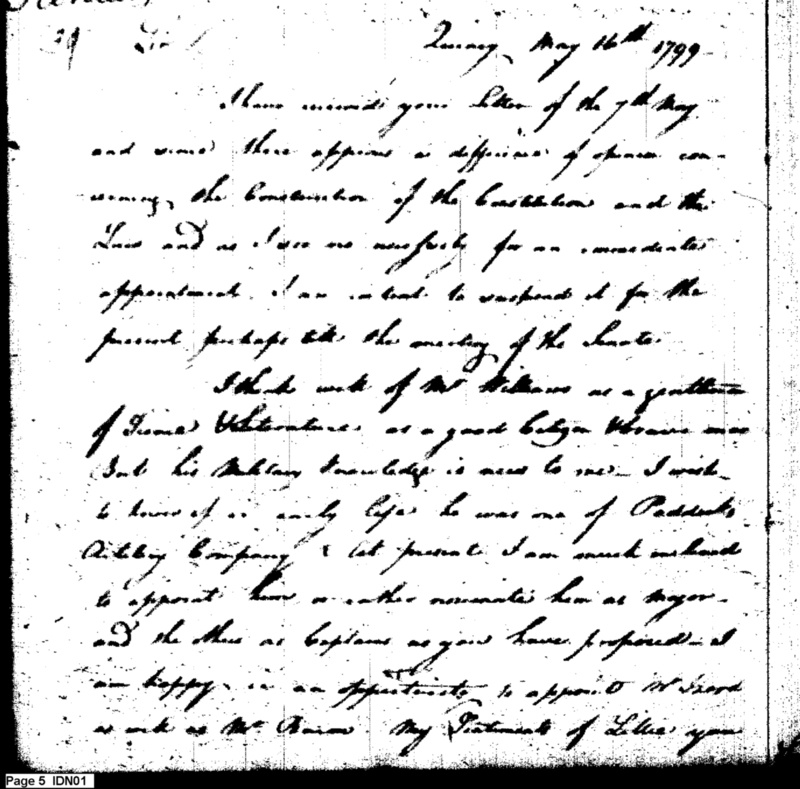 Sir
Quincy May 16th 1799
I have received your Letter of the 7th May
and since there appears a difference of opinion con-
cerning the Construction of the Constitution and the
Law and as I see no necessity for an immediate
appointment I am content to suspend it for the
present perhaps till the meeting of the Senate
I think well of Mr Williams as a gentleman
of Science & Literature as a good Citizen & brave man
But his Military Knowledge is new to me I wish
to know if in early life he was one of Paddocks
Artillery Company & At present I am much inclined
to appoint him or rather nominate him as Major
and the other as Captains as you have proposed I
am happy in an opportunity to appoint Mr Izard
as well as Mr My of Lillie you
Page 5 IDN01